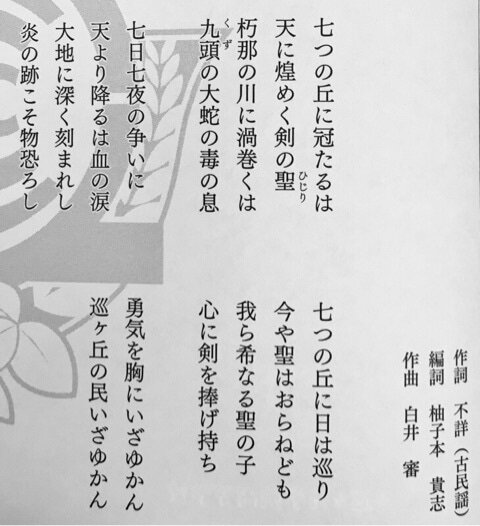 作詞　不詳（古民謡）
編詞　柚子本　貴志
作曲　白井　審
七つの丘に冠たるは
天に煌めく剣の聖
ひじり
朽那の川に渦巻くは
九頭の大蛇の毒の息
くず
七日七夜の争いに
天より降るは血の涙
大地に深く刻まれし
炎の跡こそ物恐ろし
七つの丘に日は巡り
今や聖はおらねども
我ら希なる聖の子
心に剣を捧げ持ち
勇気を胸にいざゆかん
巡ヶ丘の民いざゆかん